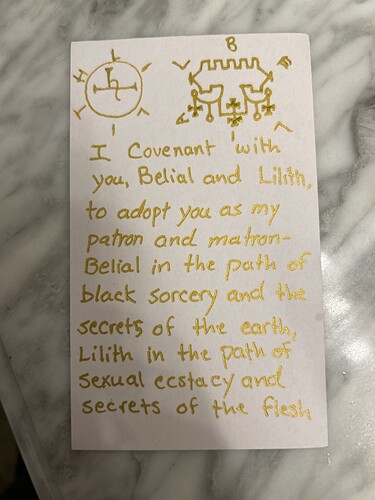 I Covenant with
you, Belial and Lilith,
to adopt you as my
patron and matron-
Belial in the path of
black sorcery and the
secrets of the earth,
Lilith in the path of
sexual ecstacy and
secrets of the flesh